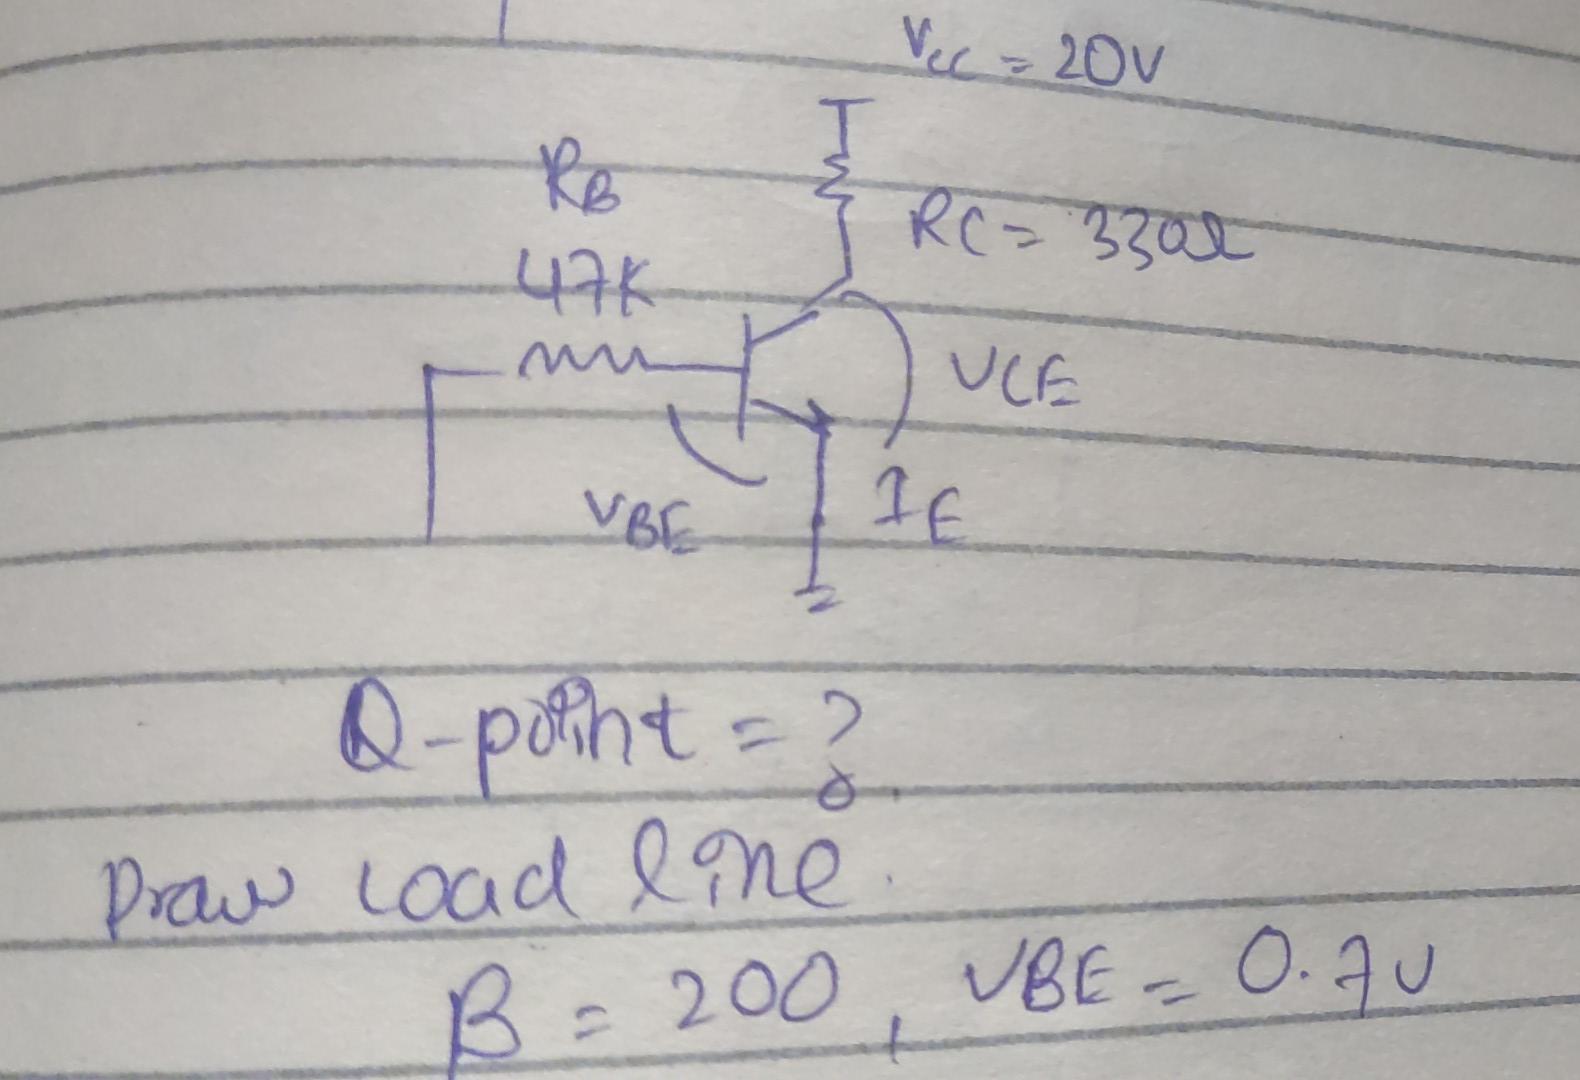 Vcc = 20V
RB
RC = 330Ω
47K
VCE
VBE
IE
Q-point = ?
Draw Load line.
β = 200, VBE = 0.7V